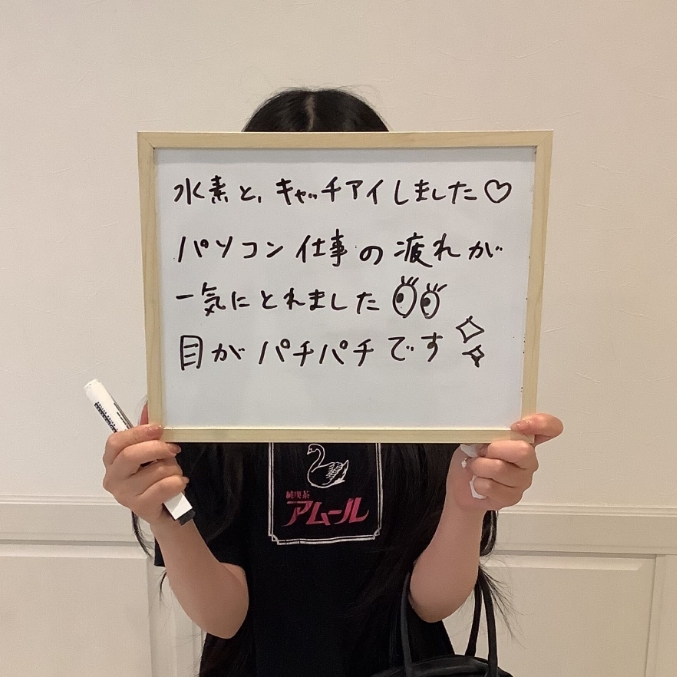 水素と、キャッチアイしました♡
パソコン仕事の疲れが
一気にとれました
目がパチパチです
純喫茶
アムール